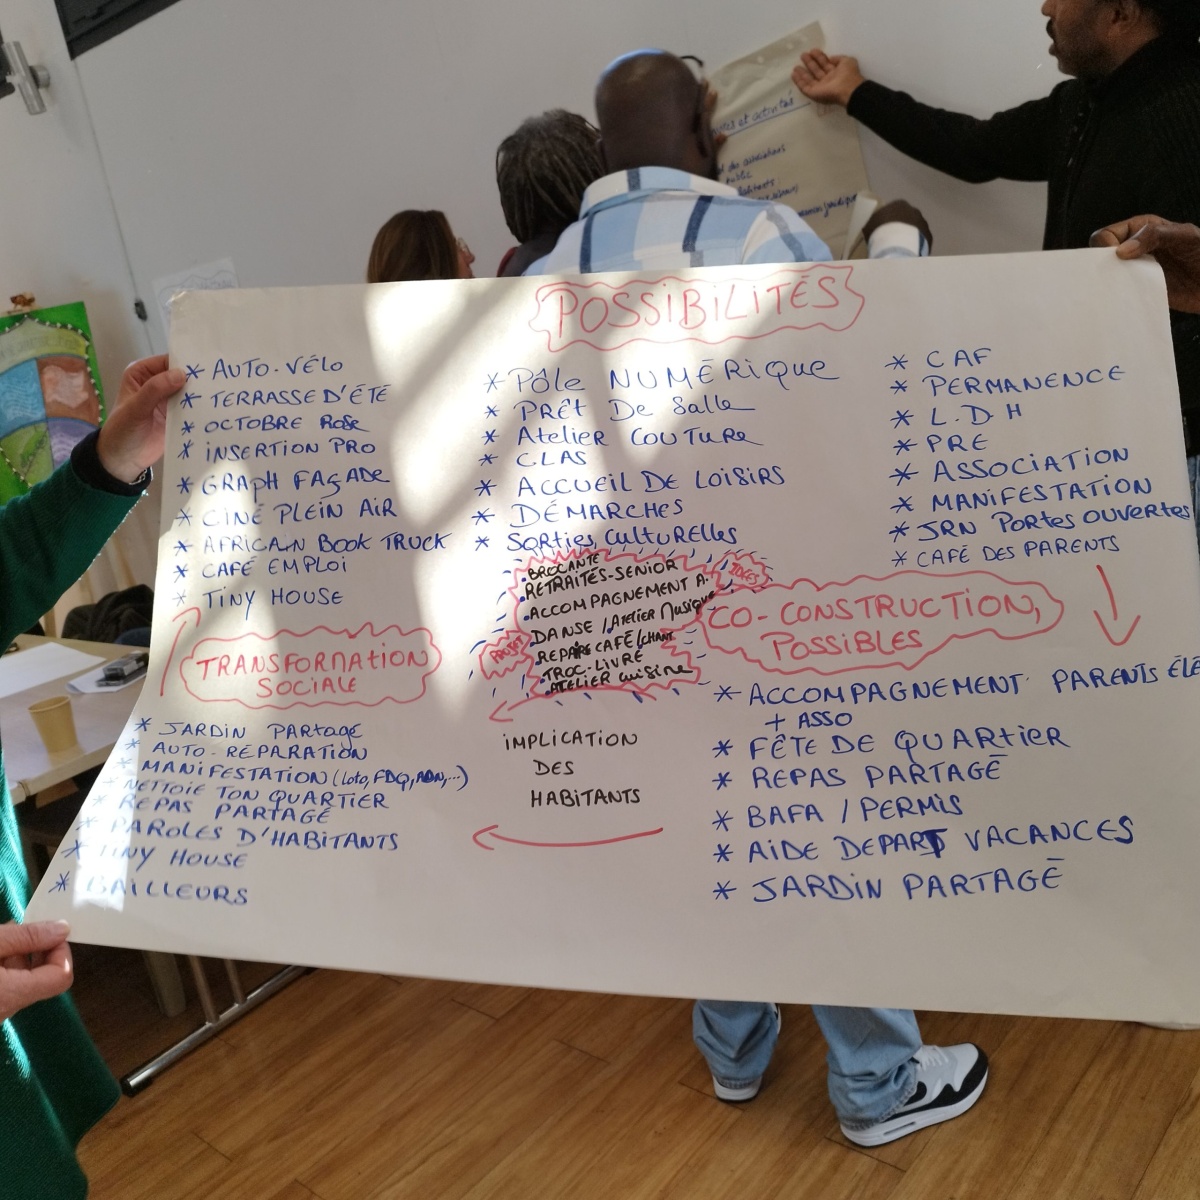 POSSIBILITÉS
* AUTO-VÉLO
* TERRASSE D'ÉTÉ
* OCTOBRE ROSE
* INSERTION PRO
* GRAPH FAÇADE
* CINÉ PLEIN AIR
* AFRICAIN BOOK TRUCK
* CAFÉ EMPLOI
* TINY HOUSE
* PÔLE NUMÉRIQUE
* PRÊT DE SALLE
* ATELIER COUTURE
* CLAS
* ACCUEIL DE LOISIRS
* DÉMARCHES
* SORTIES CULTURELLES
* CAF
* PERMANENCE
* L.D.H
* PRE
* ASSOCIATION
* MANIFESTATION
* JRN PORTES OUVERTES
* CAFÉ DES PARENTS
.BROCANTE
.RETRAITÉS-SENIOR
.ACCOMPAGNEMENT A.
DANSE / ATELIER MUSIQUE
.REPAIR CAFÉ / CHANT
.TROC-LIVRE
.ATELIER CUISINE
TRANSFORMATION
SOCIALE
* JARDIN PARTAGÉ
* AUTO-RÉPARATION
* MANIFESTATION (Loto, FDQ, ADN,...)
* NETTOIE TON QUARTIER
* REPAS PARTAGÉ
* PAROLES D'HABITANTS
* TINY HOUSE
* BAILLEURS
IMPLICATION
DES
HABITANTS
CO-CONSTRUCTION,
POSSIBLES
* ACCOMPAGNEMENT PARENTS ÉLÈ
+ ASSO
* FÊTE DE QUARTIER
* REPAS PARTAGÉ
* BAFA / PERMIS
* AIDE DEPART VACANCES
* JARDIN PARTAGÉ
et activités
des associations
public